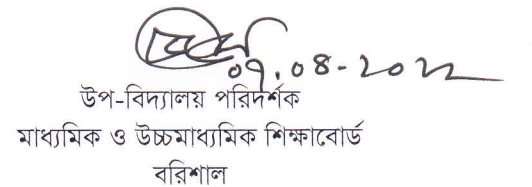 ০৭.০৪-২০২২
উপ-বিদ্যালয় পরিদর্শক
মাধ্যমিক ও উচ্চমাধ্যমিক শিক্ষাবোর্ড
বরিশাল